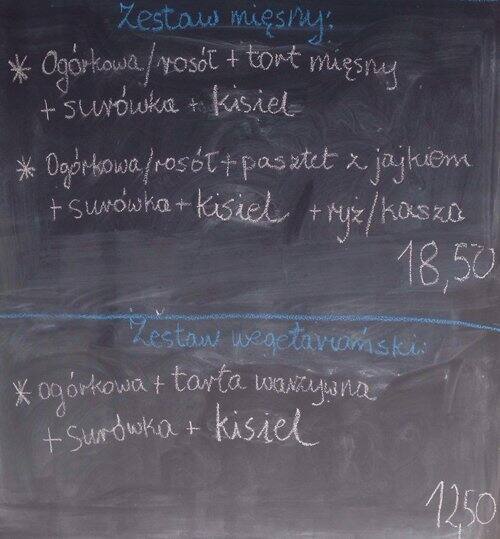 Zestaw mięsny:
* Ogórkowa/rosół + tort mięsny
+ surówka + kisiel
* Ogórkowa/rosół + pasztet z jajkiem
+ surówka + kisiel + ryż/kasza
18,50
Zestaw wegetariański:
* ogórkowa + tarta warzywna
+ surówka + kisiel
12,50